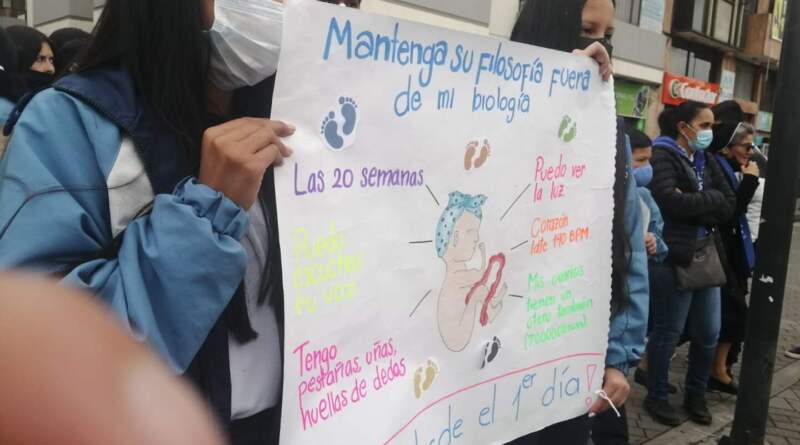 Mantenga su Filosofía Fuera
de mi biología
Las 20 semanas
Puedo
escuchar
tu voz
Tengo
pestañas, uñas,
huellas de dedos
Puedo ver
la luz
Corazón
late 140 BPM.
Mis ovarios
tienen un
útero también
desde el 1er día!